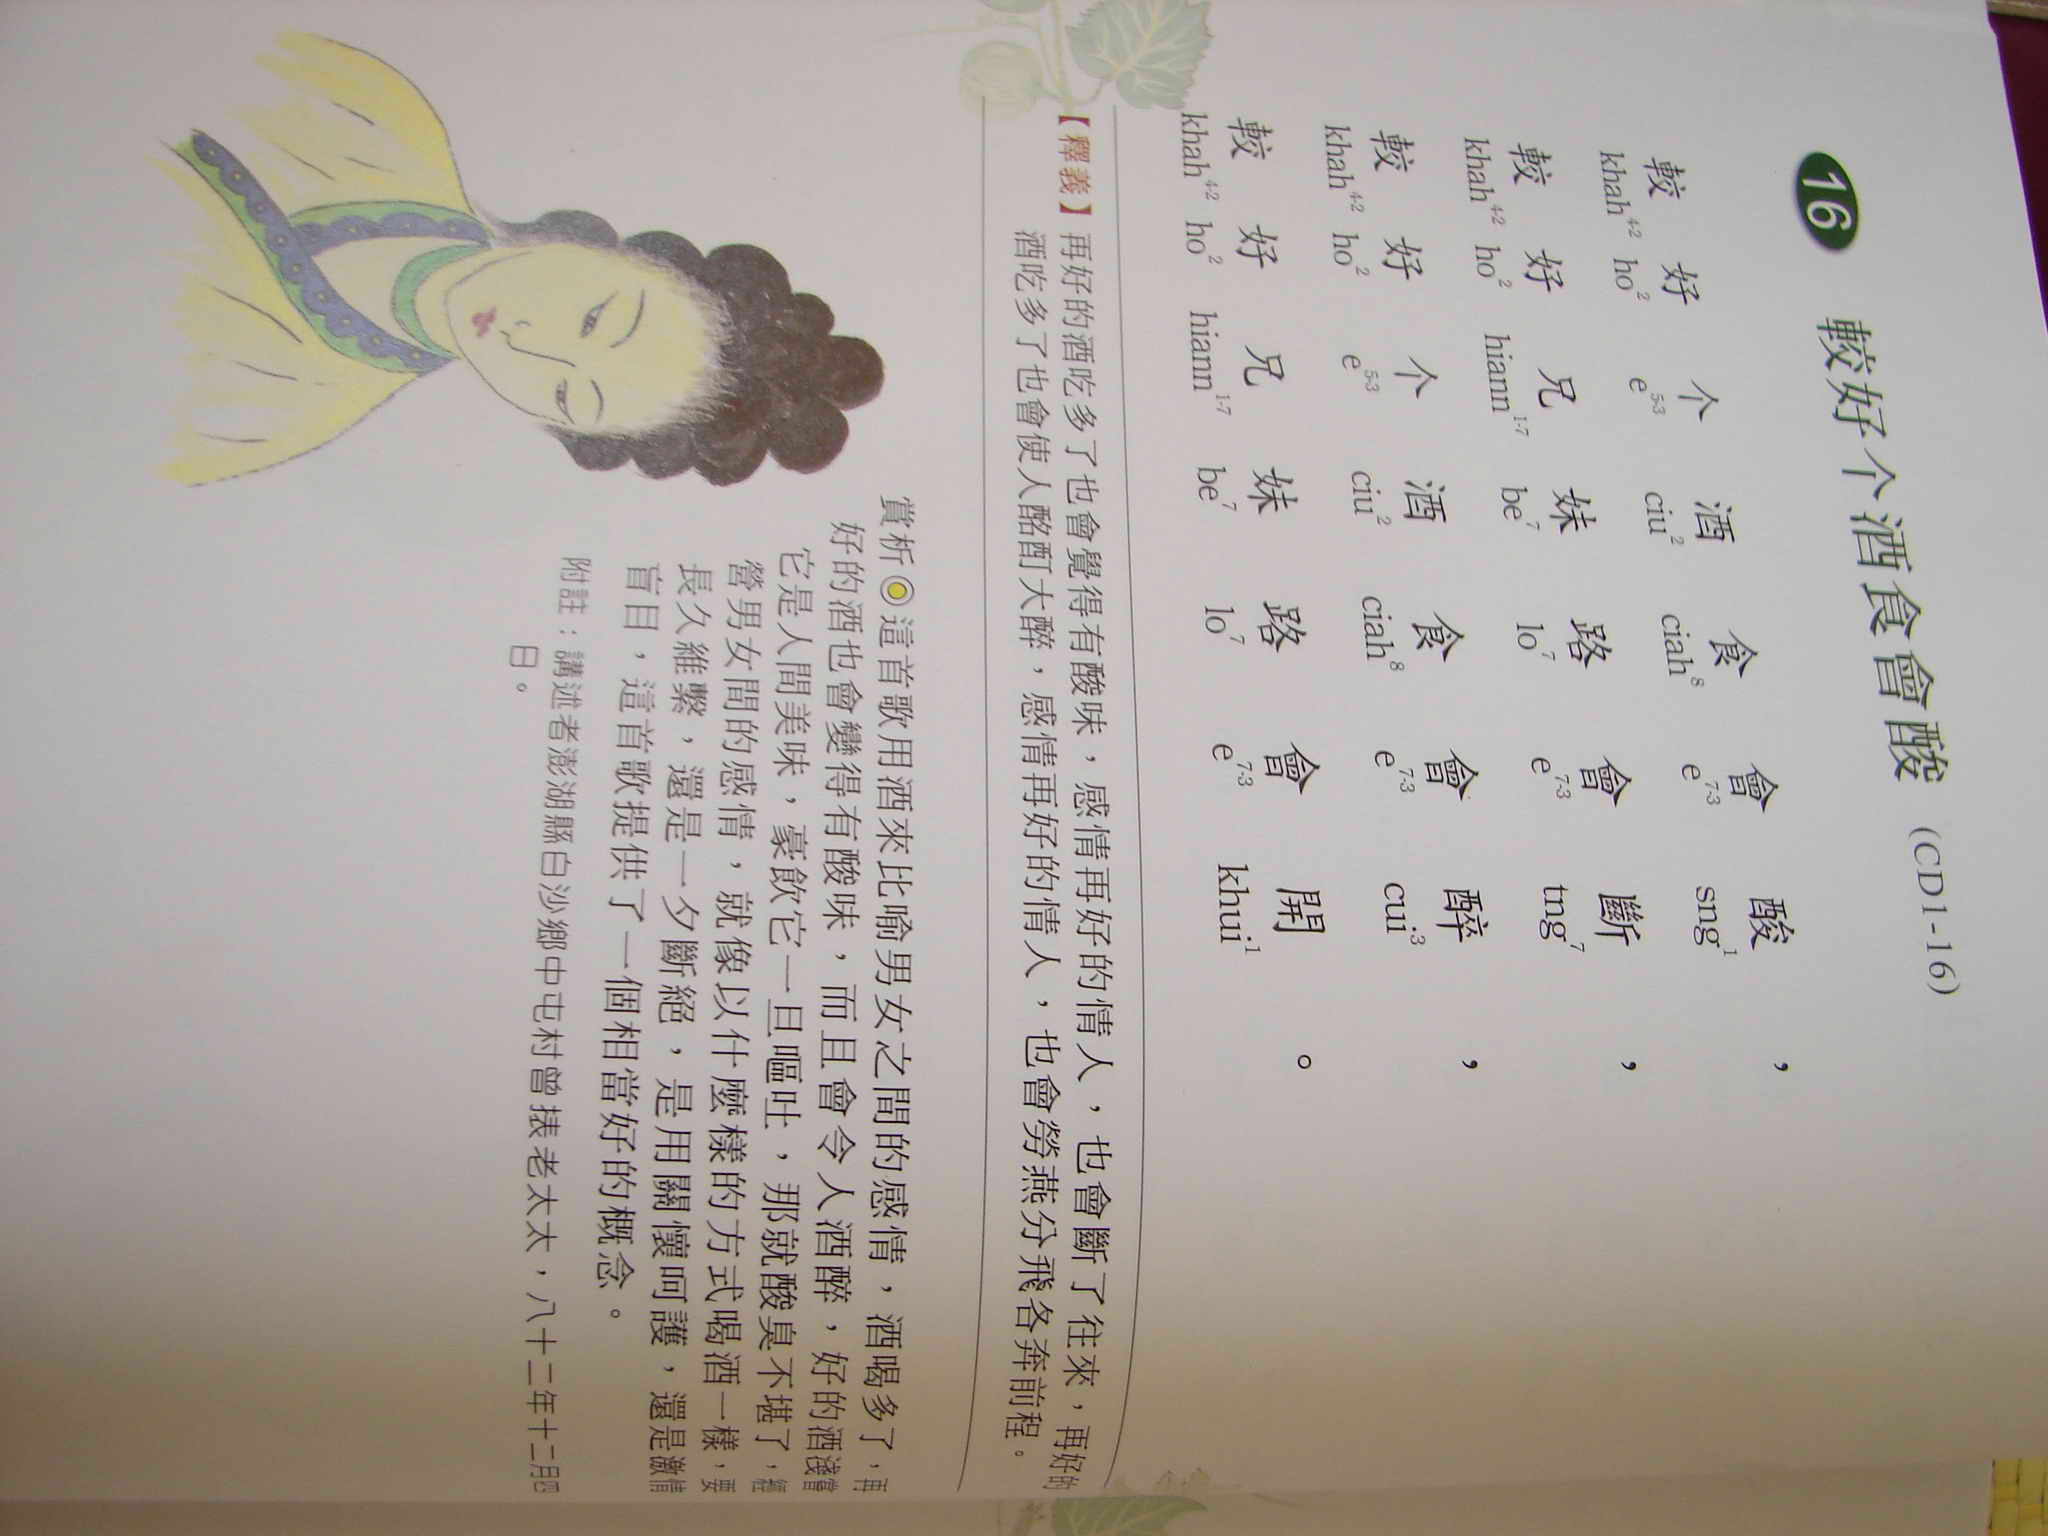 16 較好个酒食會酸 (CD1-16)
較 好 个 酒 食 會 酸 ，
khah4-2 ho2 e5-3 ciu2 ciah8 e7-3 sng1
較 好 兄 妹 路 會 斷 ，
khah4-2 ho2 hiann1-7 be7 lo7 e7-3 tng7
較 好 个 酒 食 會 醉 ，
khah4-2 ho2 e5-3 ciu2 ciah8 e7-3 cui3
較 好 兄 妹 路 會 開 。
khah4-2 ho2 hiann1-7 be7 lo7 e7-3 khui1
【釋義】再好的酒吃多了也會覺得有酸味，感情再好的情人，也會斷了往來，再好的
酒吃多了也會使人酩酊大醉，感情再好的情人，也會勞燕分飛各奔前程。
賞析 這首歌用酒來比喻男女之間的感情，酒喝多了，再
好的酒也會變得有酸味，而且會令人酒醉，好的酒淺嘗
它是人間美味，豪飲它一旦嘔吐，那就酸臭不堪了，經
營男女間的感情，就像以什麼樣的方式喝酒一樣，要
長久維繫，還是一夕斷絕，是用關懷呵護，還是激情
盲目，這首歌提供了一個相當好的概念。
附註：講述者澎湖縣白沙鄉中屯村曾老太太，八十二年十二月四
日。